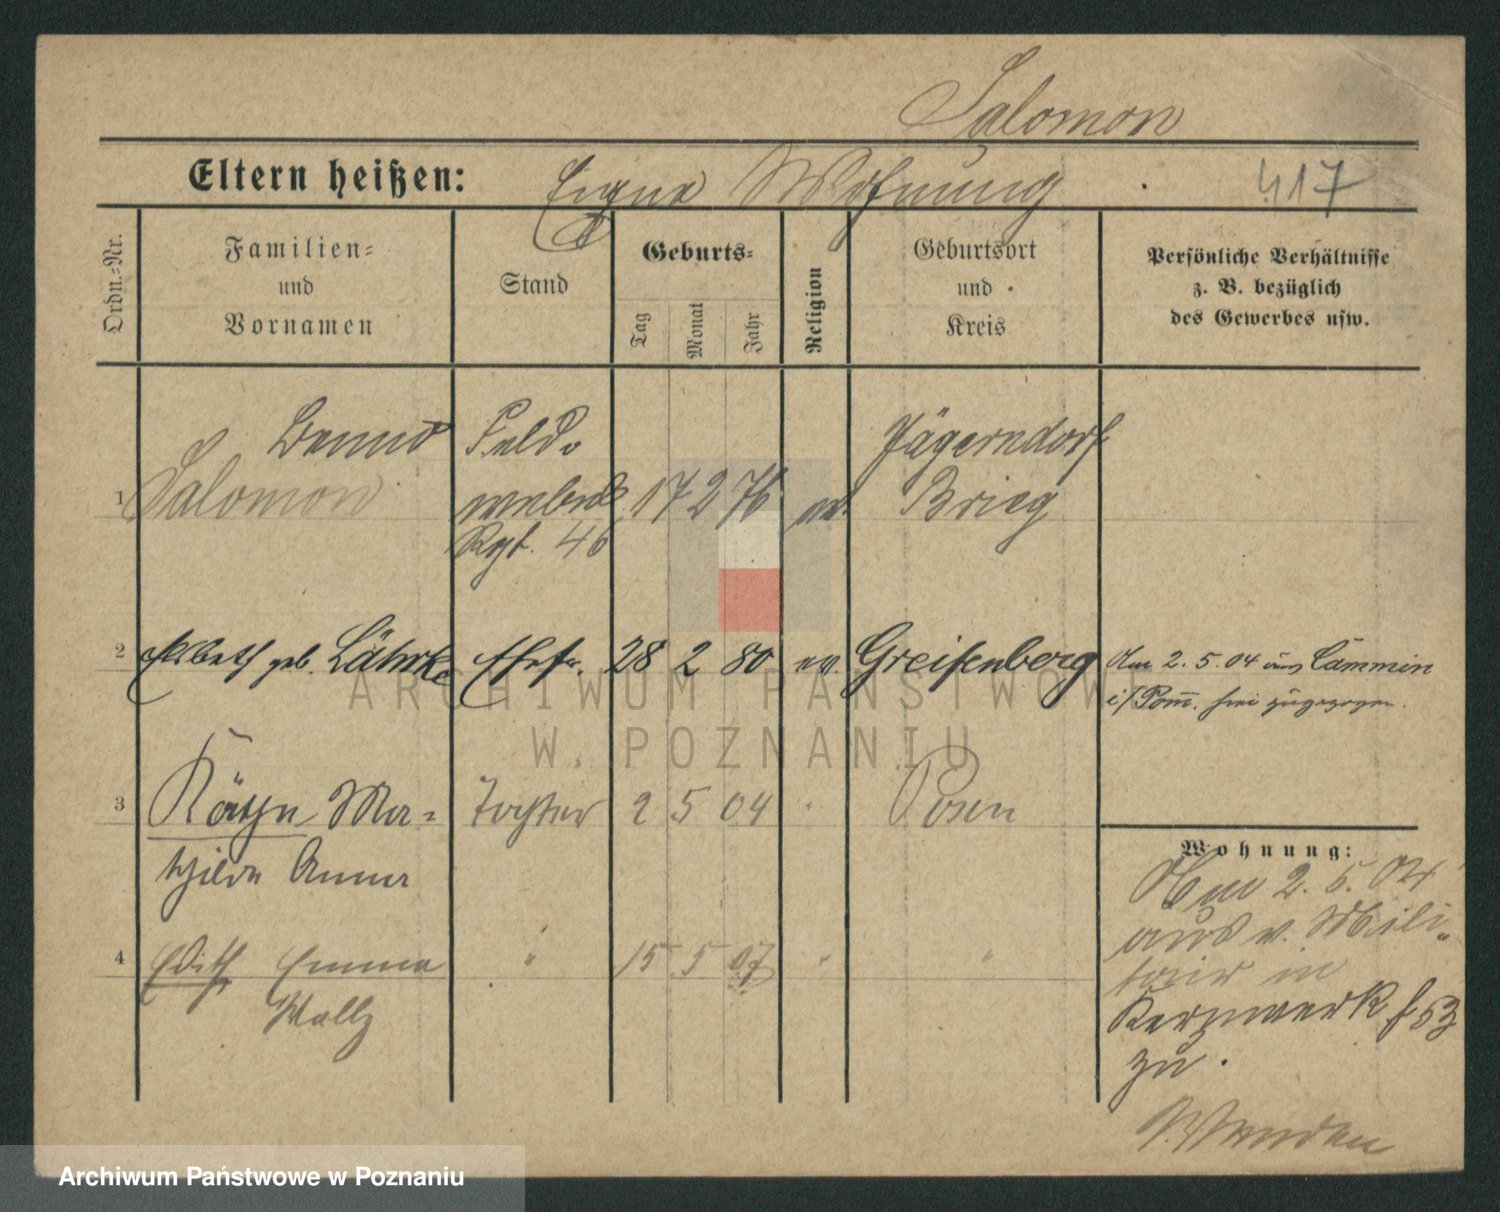 Salomon
Eltern heißen: Eigne Wohnung 417
Ordn.-Nr.
Familien-
und
Vornamen
Stand
Geburts-
Tag
Monat
Jahr
Religion
Geburtsort
und
Kreis
Persönliche Verhältnisse
z. B. bezüglich
des Gewerbes usw.
Benno Feld- Jägerndorf
1 Salomon webel 17 2 76 ev. Brieg
Rgt. 46
2 Elsbeth geb. Lährke Ehefr. 28 2 80 ev. Greifenberg Am 2.5.04 aus Cammin
i/Pom. hier zugezogen.
3 Käthe Ma- Tochter 2 5 04 " Posen
thilde Anna
Wohnung:
Am 2. 5. 04
aus v. Mili-
tair in
4 Edith Emma " 15 5 07 " "
Wally
Kernwerk f 53
zu.
ARCHIWUM PAŃSTWOWE
W POZNANIU
Archiwum Państwowe w Poznaniu